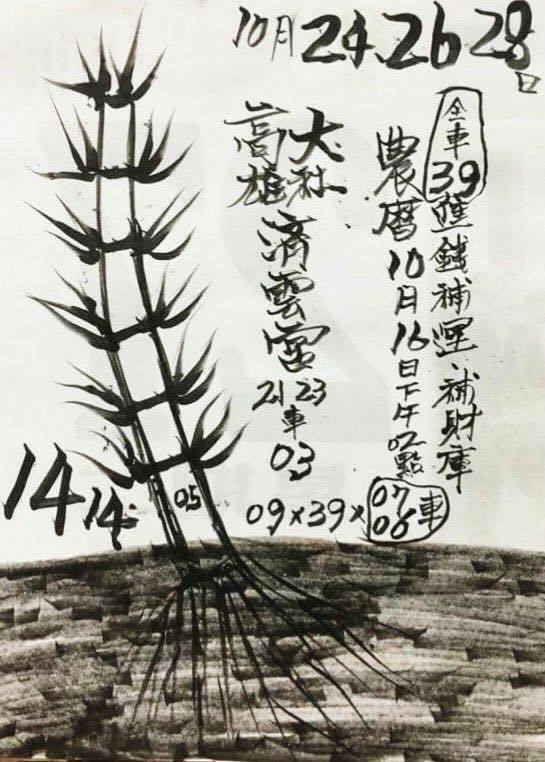 10月24.26 28日
全車39
進錢補運、補財庫
農曆10月16日下午02點
07 08 車
大社
高雄
濟雲宮
21 23
車
03
09x39x
05
14 14